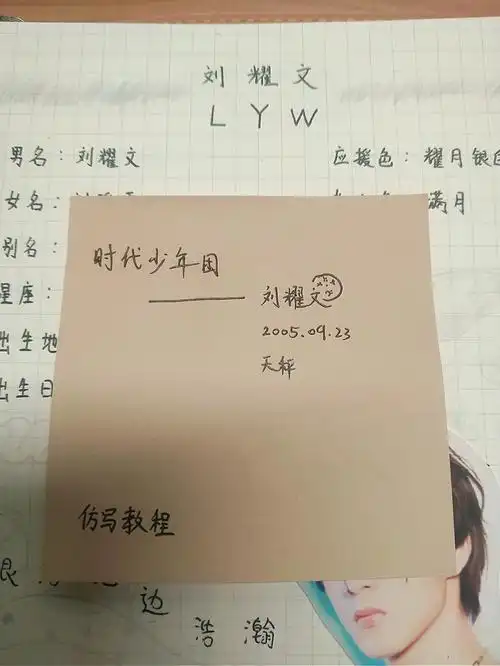 刘耀文
LYW
男名：刘耀文
应援色：耀月银白
女名：
满月
别名：
星座：
出生地
出生日
时代少年团
——刘耀文
2005.09.23
天秤
仿写教程
边
浩瀚